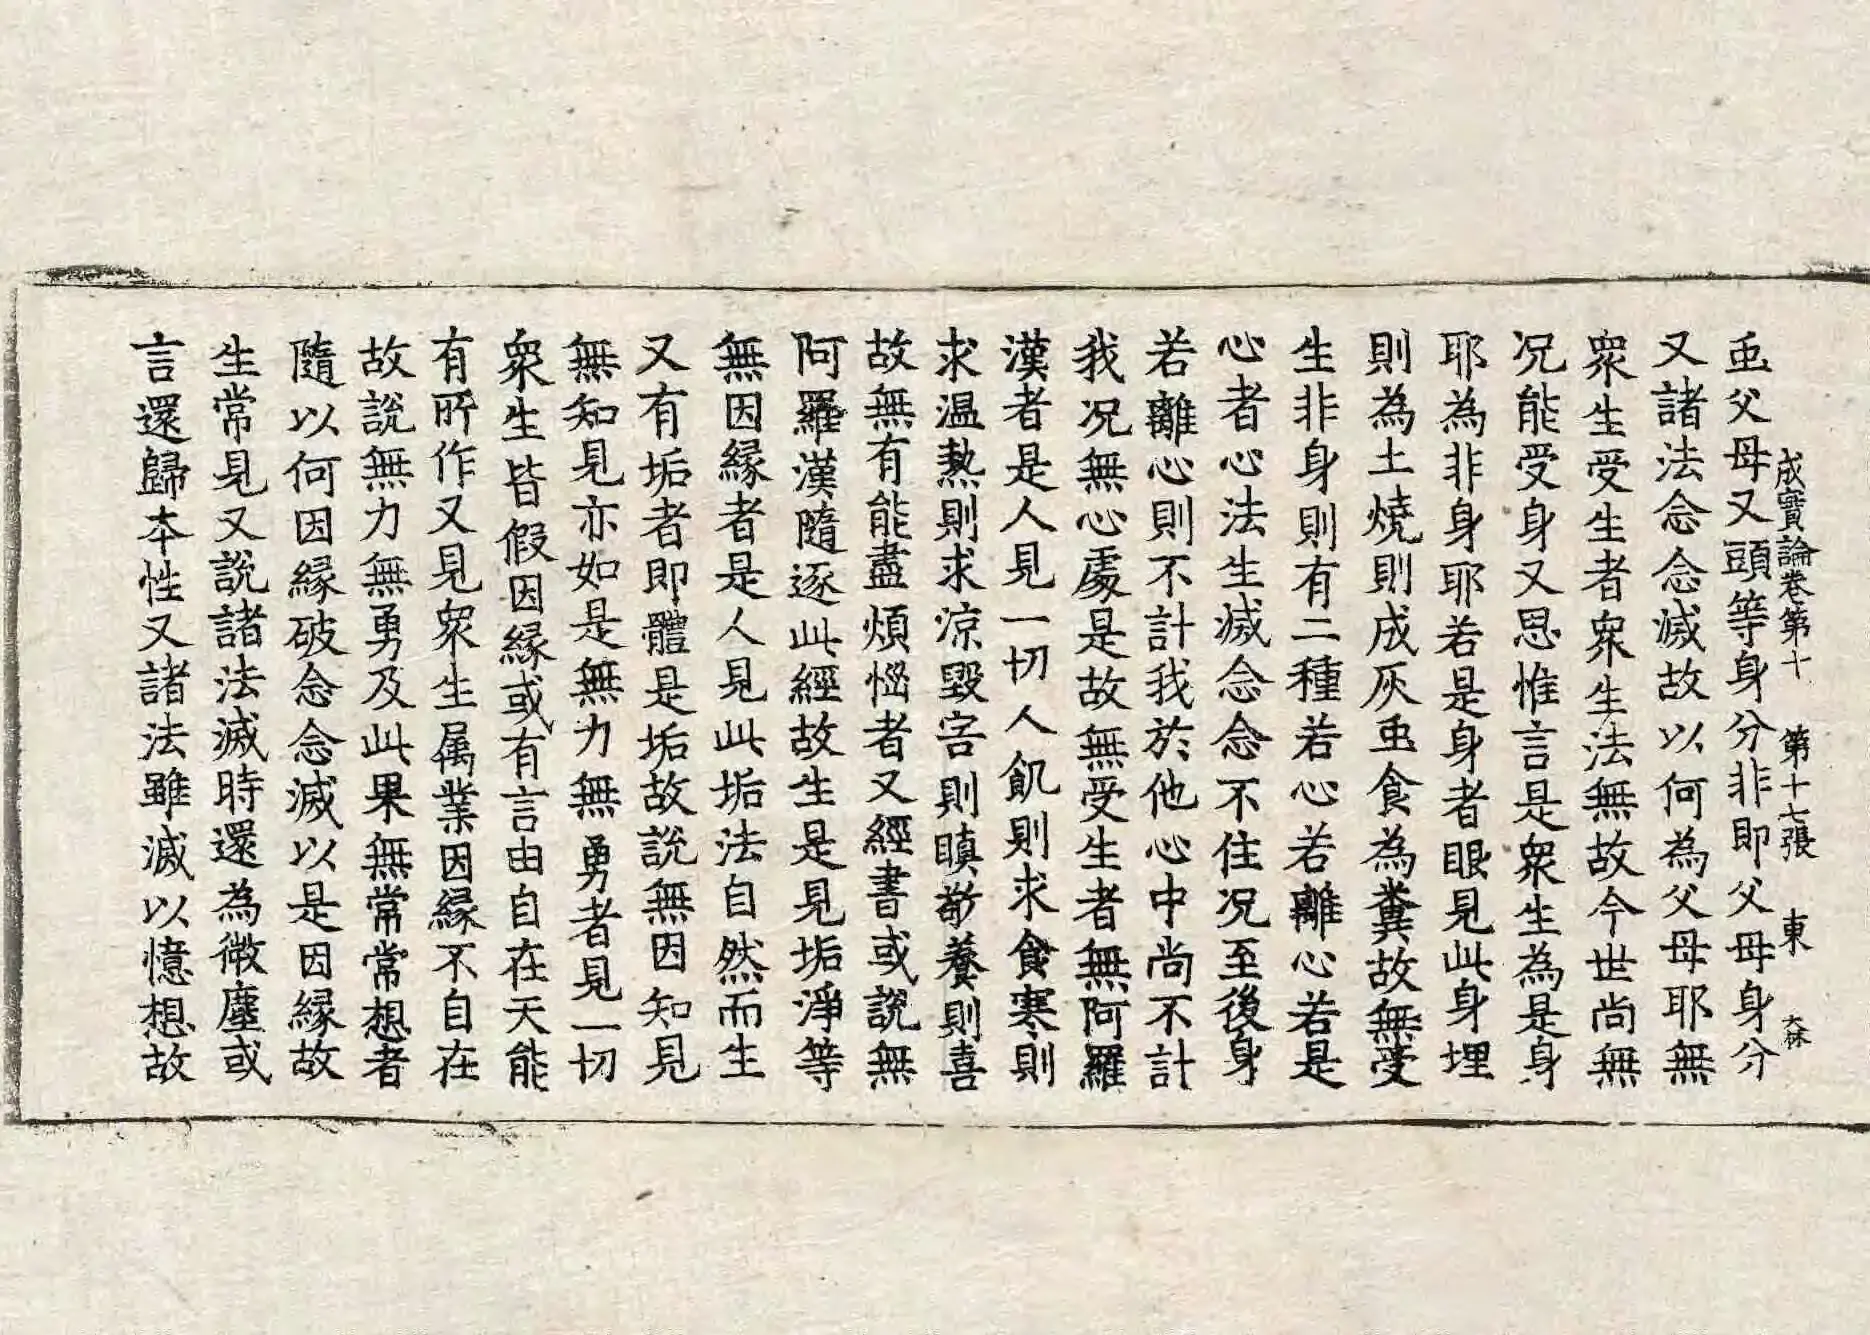 成實論卷第十 第十七張 東 大休
䖝父母又頭等身分非即父母身分
又諸法念念滅故以何為父母耶無
衆生受生者衆生法無故今世尚無
况能受身又思惟言是衆生為是身
耶為非身耶若是身者眼見此身埋
則為土燒則成灰䖝食為糞故無受
生非身則有二種若心若離心若是
心者心法生滅念念不住况至後身
若離心則不計我於他心中尚不計
我况無心處是故無受生者無阿羅
漢者是人見一切人飢則求食寒則
求温熱則求凉毀害則瞋敬養則喜
故無有能盡煩惱者又經書或說無
阿羅漢隨逐此經故生是見垢淨等
無因縁者是人見此垢法自然而生
又有垢者即體是垢故說無因知見
無知見亦如是無力無勇者見一切
衆生皆假因縁或有言由自在天能
有所作又見衆生属業因縁不自在
故說無力無勇及此果無常常想者
隨以何因縁破念念滅以是因縁故
生常見又說諸法滅時還為微塵或
言還歸本性又諸法雖滅以憶想故